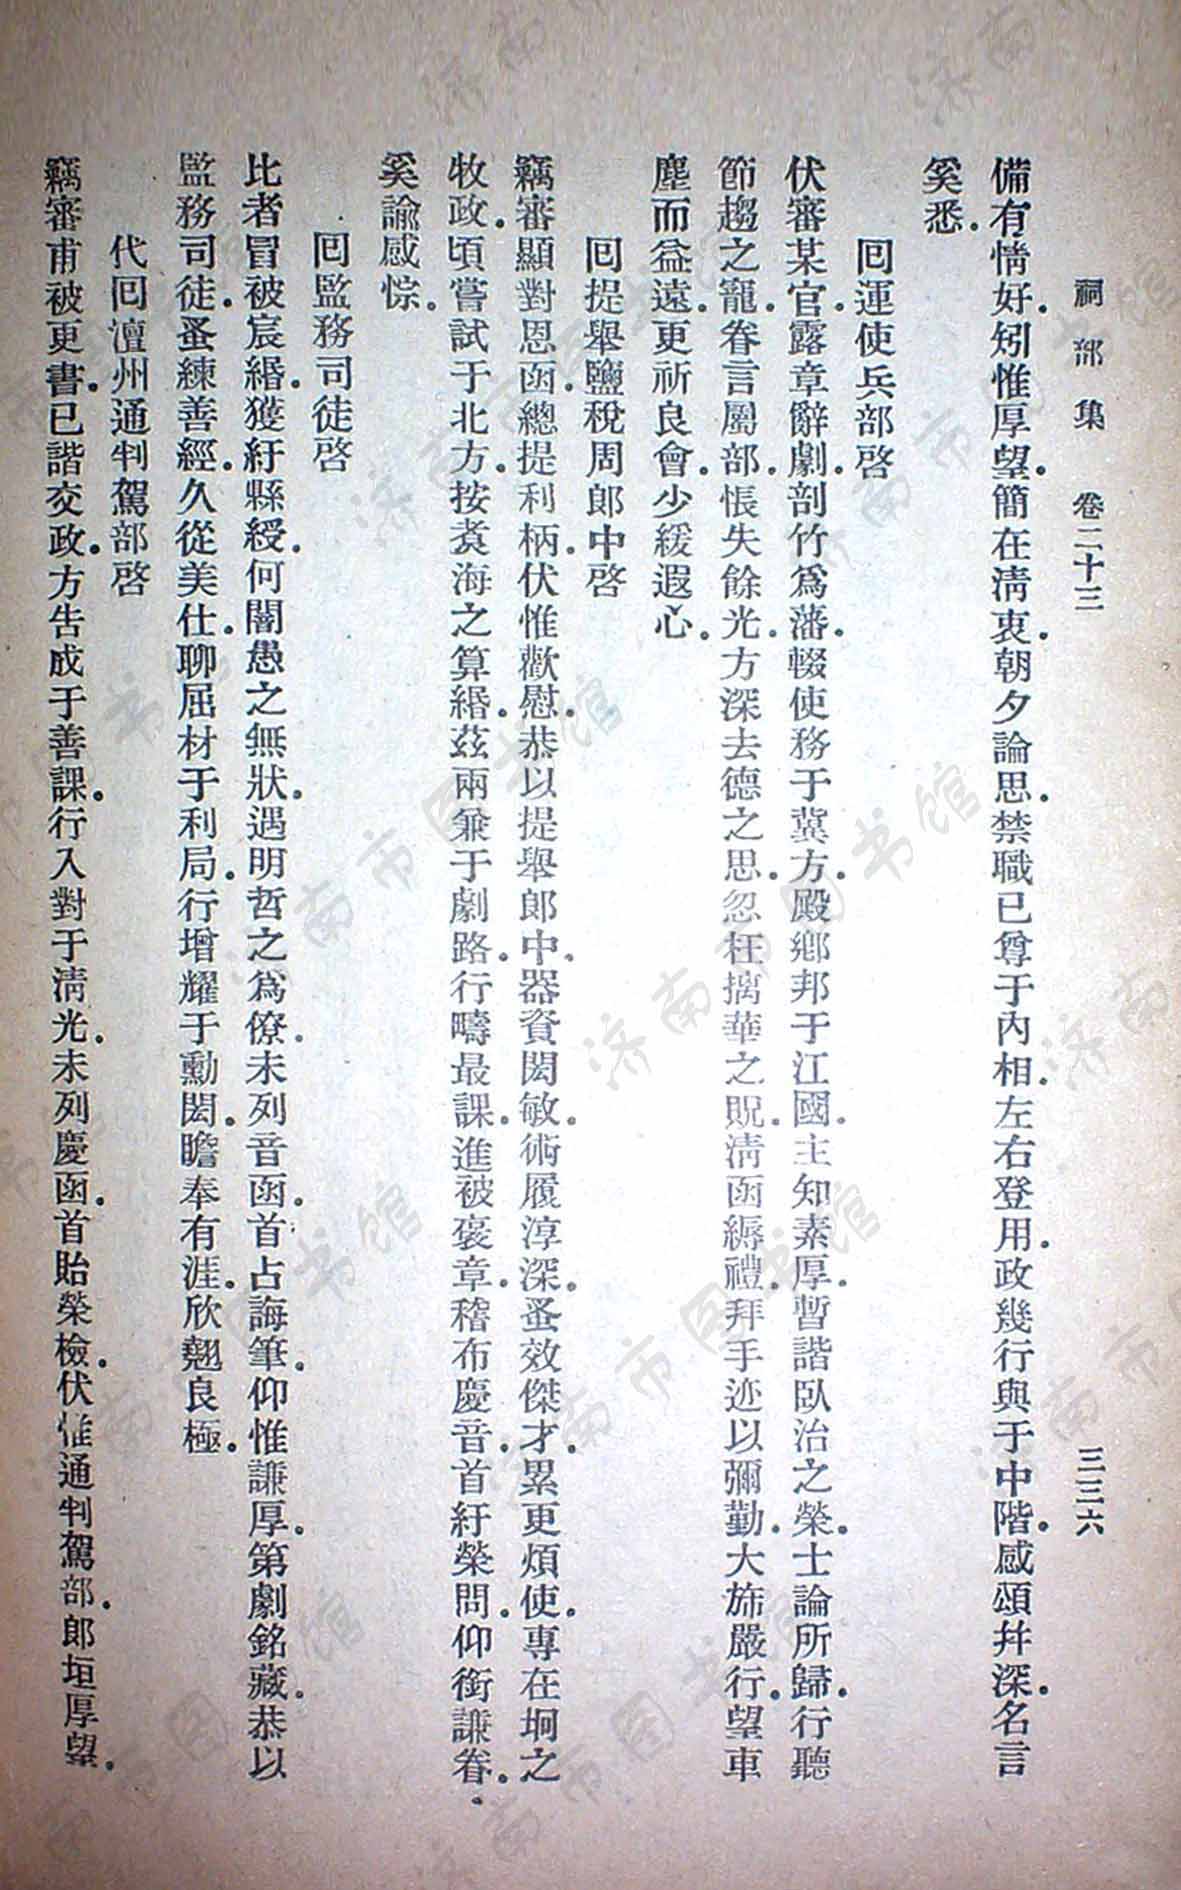 祠部集　卷二十三　三三六
備有情好．矧惟厚望．簡在淸衷．朝夕論思．禁職已尊于內相．左右登用．政幾行與于中階．感頌幷深．名言
奚悉．
回運使兵部啓
伏審某官露章辭劇．剖竹爲藩．輟使務于冀方．殿鄉邦于江國．主知素厚．暫諧臥治之榮．士論所歸．行聽
節趨之寵．眷言屬部．悵失餘光．方深去德之思．忽枉摛華之貺．淸函縟禮．拜手迹以彌勤．大旆嚴行．望車
塵而益遠．更祈良會．少緩遐心．
回提舉鹽稅周郞中啓
竊審顯對恩函．總提利柄．伏惟歡慰．恭以提舉郞中．器資閎敏．術履淳深．蚤效傑才．累更煩使．專在坰之
牧政．頃嘗試于北方．按煑海之算緡．茲兩兼于劇路．行疇最課．進被褒章．稽布慶音．首紆榮問．仰銜謙眷．
奚諭感悰．
回監務司徒啓
比者冒被宸緡．獲紆縣綬．何闇愚之無狀．遇明哲之爲僚．未列音函．首占誨筆．仰惟謙厚．第劇銘藏．恭以
監務司徒．蚤練善經．久從美仕．聊屈材于利局．行增耀于勳閎．瞻奉有涯．欣翹良極．
代回澶州通判駕部啓
竊審甫被更書．已諧交政．方吿成于善課．行入對于淸光．未列慶函．首貽榮檢．伏惟通判駕部．郞垣厚望．